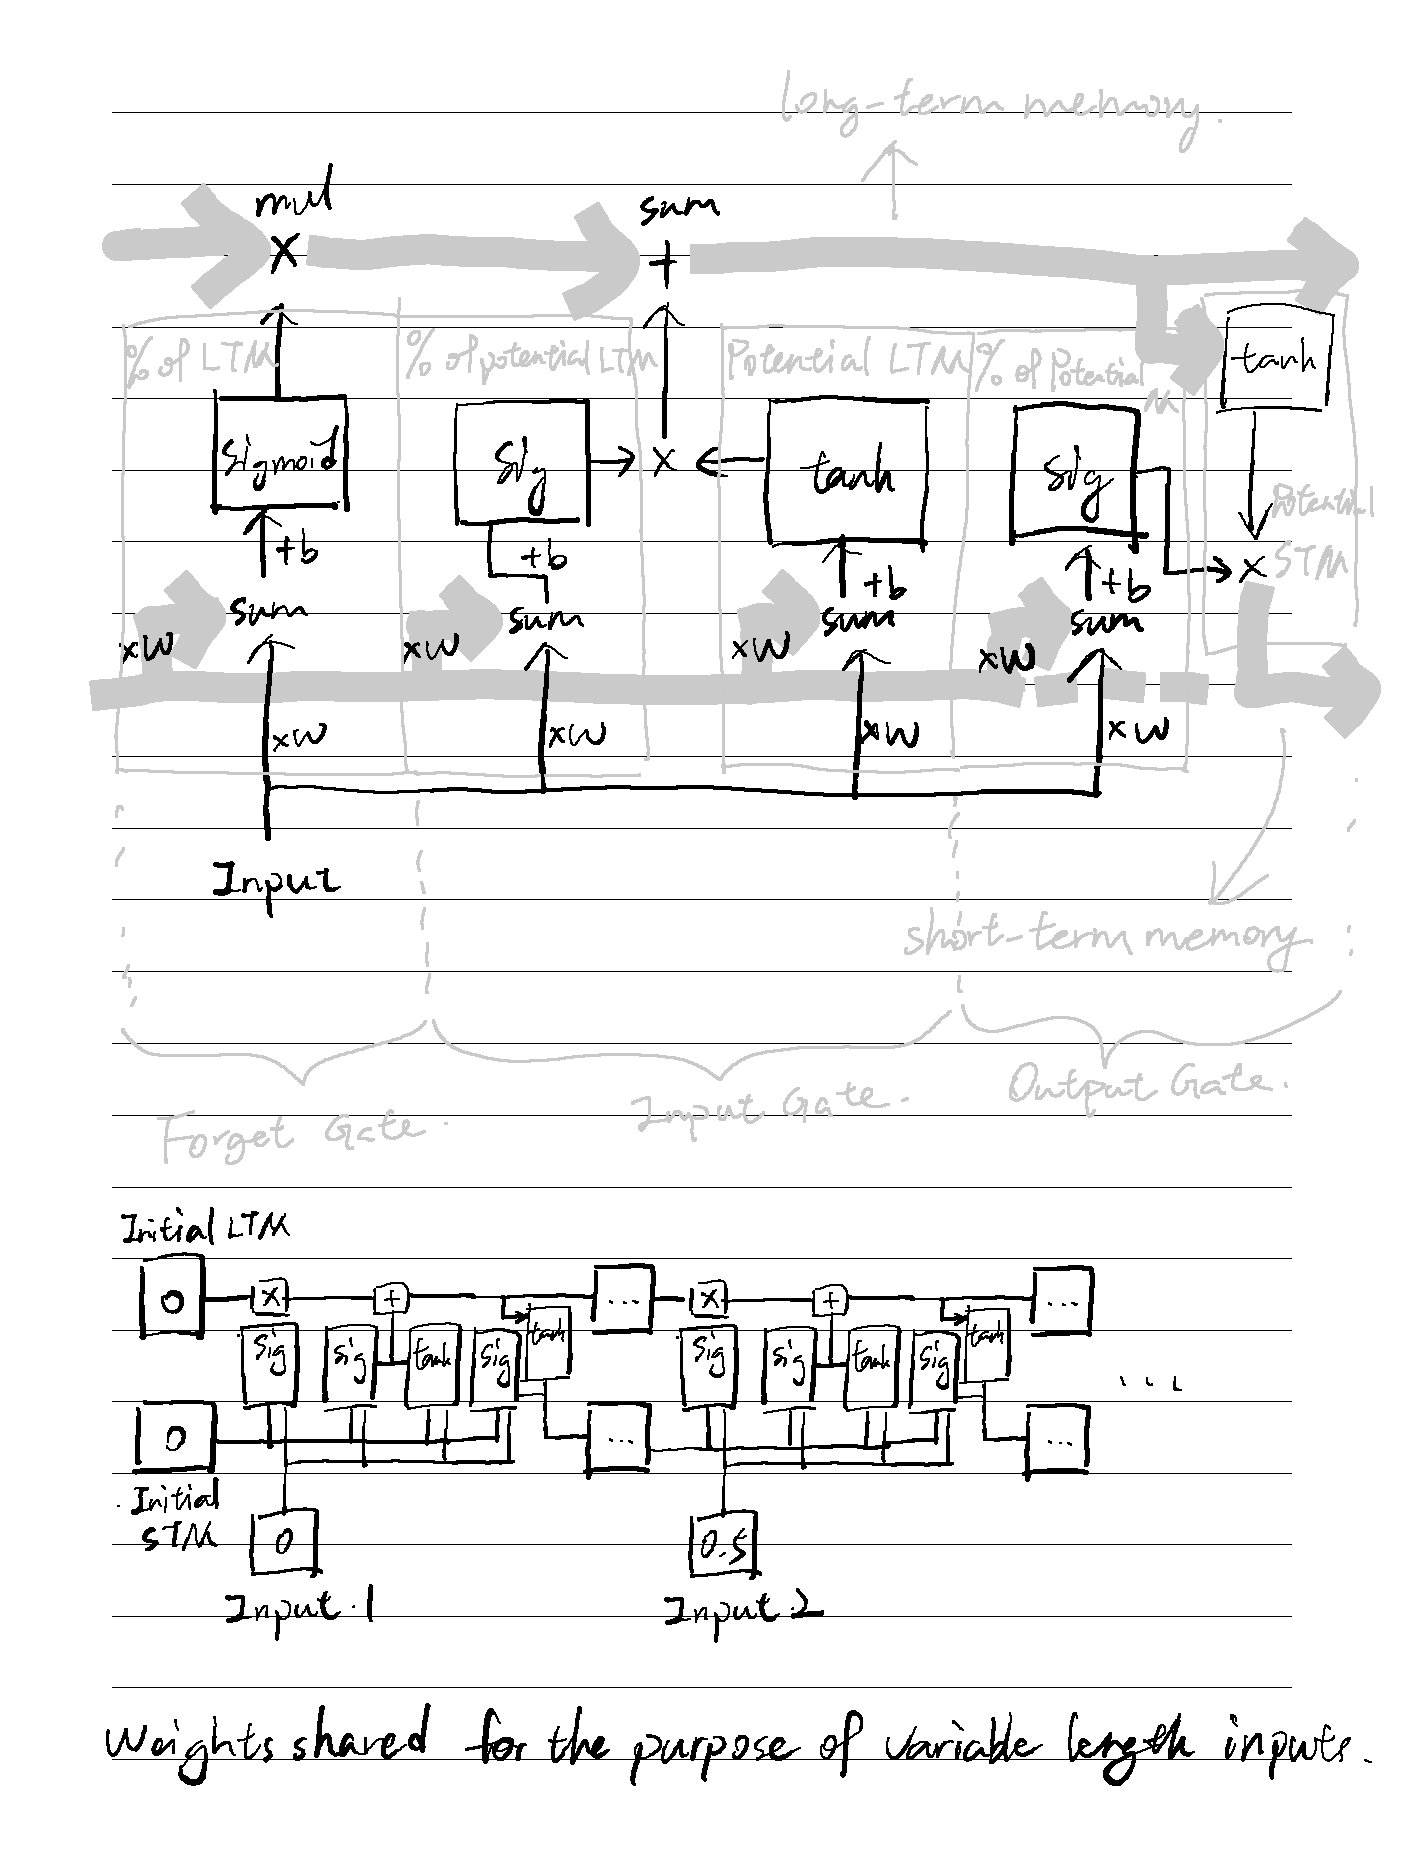 long-term memory.
mul
sum
×
+
% of LTM
% of potential LTM
Potential LTM
% of Potential
M
tanh
Sigmoid
Sig
×
tanh
Sig
Potential
STM
+b
+b
+b
+b
×
sum
sum
sum
sum
×W
×W
×W
×W
×W
×W
×W
×W
Input
short-term memory
Forget Gate.
Input Gate.
Output Gate.
Initial LTM
0
×
+
...
×
+
...
Sig
sig
tanh
sig
tanh
Sig
sig
tanh
sig
tanh
...
0
...
...
Initial
STM
0
0.5
Input 1
Input 2
Weights shared for the purpose of variable length inputs.